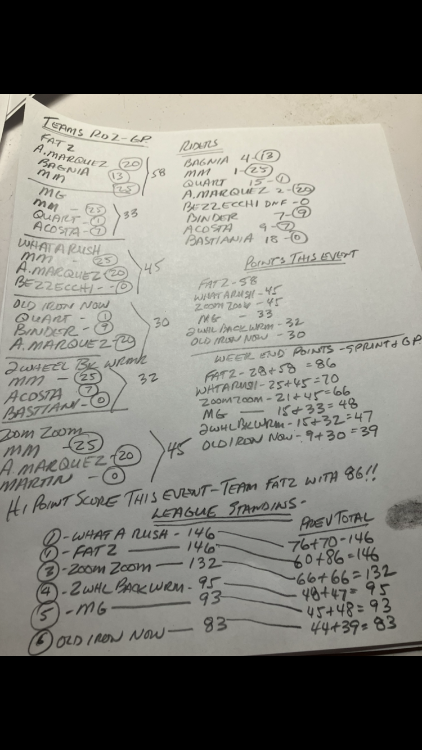 TEAMS RD2-GP
FAT 2
A.MARQUEZ (20)
BAGNIA (13) 58
MM (25)
MG
MM - (25)
QUART - (1) 33
ACOSTA - (7)
WHAT A RUSH
MM - (25)
A.MARQUEZ (20) 45
BEZZECCHI - (0)
OLD IRON NOW
QUART - (1)
BINDER - (9) 30
A.MARQUEZ - (20)
2 WHEEL BK WRMR
MM - (25)
ACOSTA (7) 32
BASTIANI - (0)
ZOOM ZOOM
MM - (25)
A.MARQUEZ - (20) 45
MARTIN - (0)
RIDERS
BAGNIA 4-(13)
MM 1-(25)
QUART 15-(1)
A.MARQUEZ 2-(20)
BEZZECCHI DNF-0
BINDER 7-(9)
ACOSTA 9-(7)
BASTIANIA 18-(0)
POINTS THIS EVENT
FAT 2-58
WHAT A RUSH-45
ZOOM ZOOM-45
MG - 33
2WHL BACK WRM-32
OLD IRON NOW-30
WEEK END POINTS-SPRINT & GP
FAT 2-28+58=86
WHAT A RUSH-25+45=70
ZOOM ZOOM-21+45=66
MG — 15+33=48
2WHL BKWRM-15+32=47
OLD IRON NOW-9+30=39
HI POINT SCORE THIS EVENT-TEAM FAT 2 WITH 86!!
LEAGUE STANDINS-
PREV TOTAL
-WHAT A RUSH-146 76+70-146
(1)-FAT 2 — 146 60+86=146
-ZOOM ZOOM — 132 66+66=132
(4)-2WHL BACK WRM- 95 48+47= 95
(5) -MG — 93 45+48= 93
(6) OLD IRON NOW — 83 44+39= 83